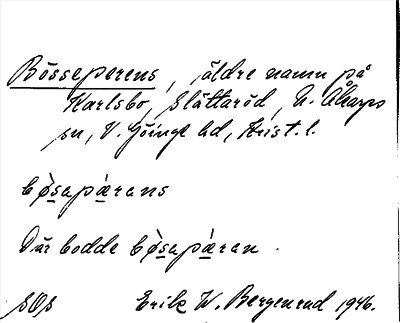 Bösseperens, äldre namn på
Karlsbo, Slättaröd, N. Åkarps
sn, V. Göinge hd, Krist. l.
bø̀sapæ̀rans
Där bodde bø̀sapæ̀ran.
SOs Erik W. Bergenrud 1946.